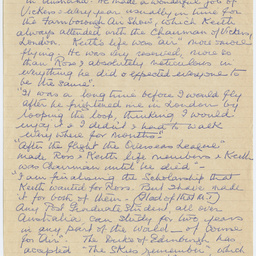 in Australia. He made a wonderful job of
Vickers & every year
the Farnborough Air Show, which Keith
always attended with the Chairman of Vickers,
London. Keith's life was air - more so since
flying - He was very reserved, more so
than Ross & absolutely meticulous in
everything he did & expected everyone to
be the same".
"It was a long time before I would fly
after he frightened me in London by
looping the loop, thinking I would
enjoy it & I didn't & had to walk
everywhere for months".
"After the flight the Overseas League
made Ross & Keith life members & Keith
was Chairman until he died" -
"I am finalising the Scholarship that
Keith wanted for Ross. But I have made
it for both of them - (Glad of that M.?)
Any Post Graduate Student, all over
Australia can study for two years
in any part of the World - of course
for Air". The Duke of Edinburgh has
accepted "The Skies remember", which